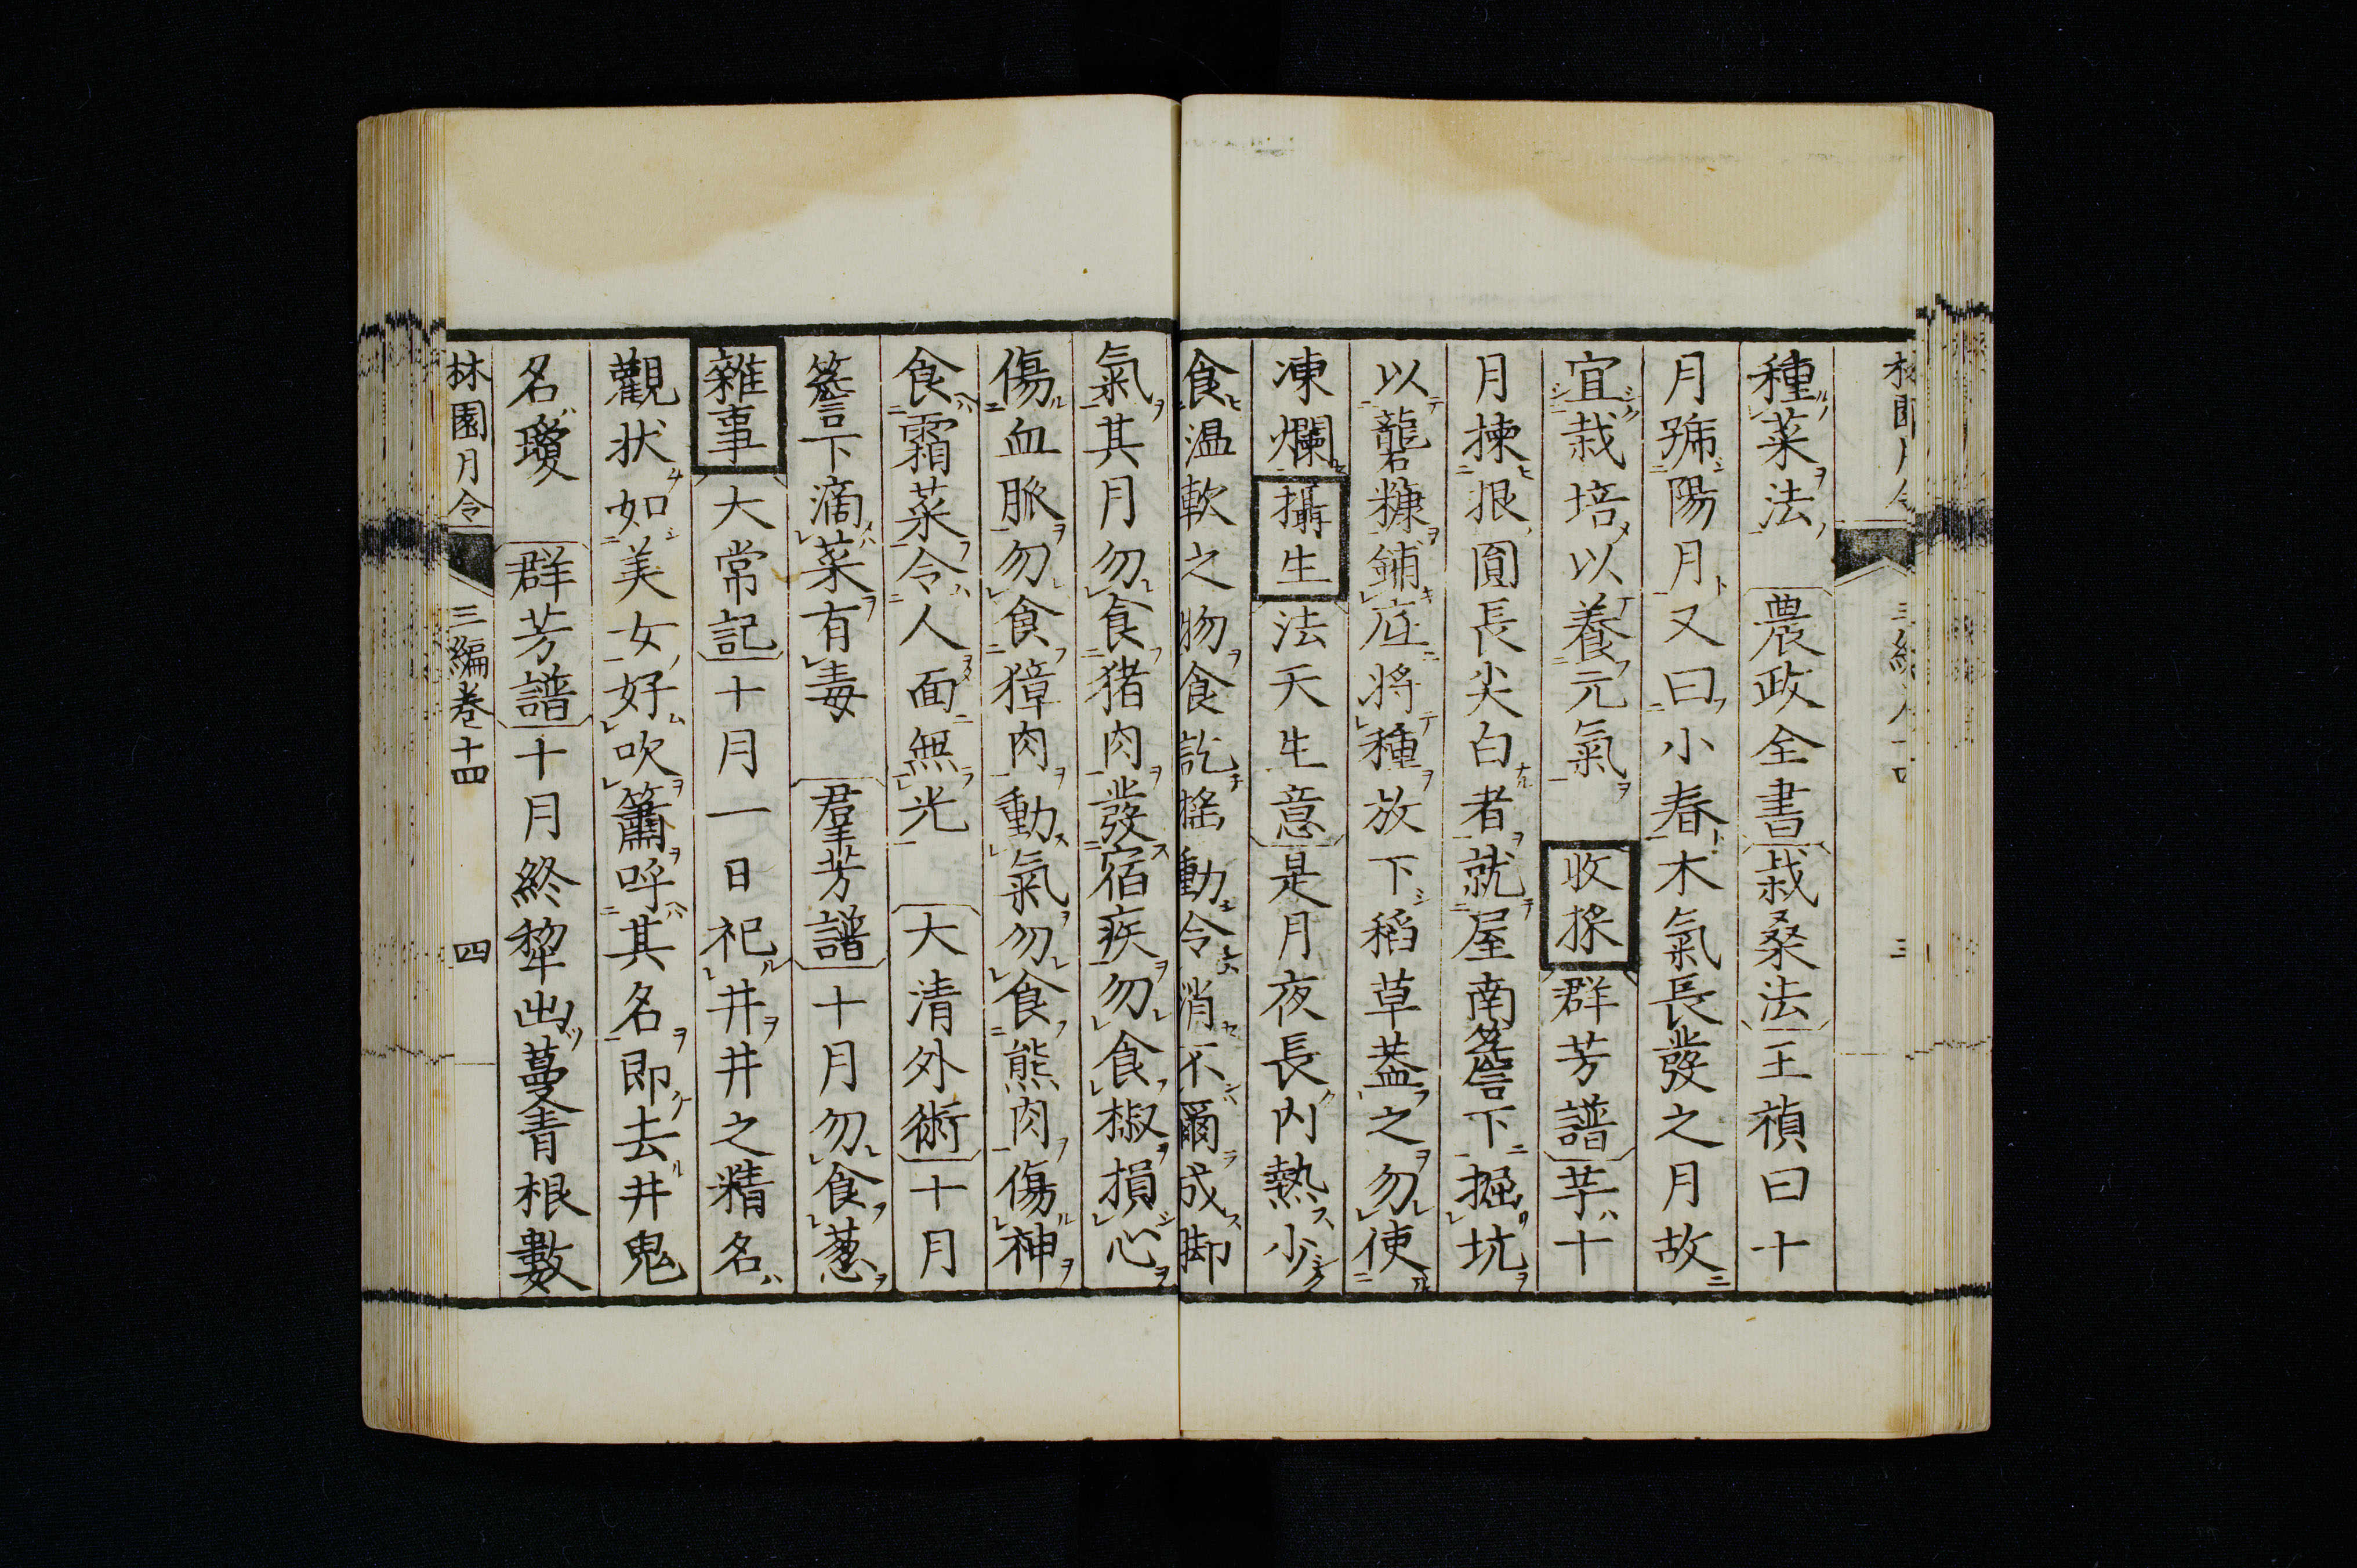 種菜法 農政全書 栽桑法 王禎曰十
月號陽月又曰小春木氣長發之月故
宜栽培以養元氣 收採 群芳譜 芋十
月揀根圓長尖白者就屋南簷下掘坑
以礱糠鋪底將種放下稻草葢之勿使
凍爛 攝生 法天生意 是月夜長內熱少
食温軟之物食訖搖動令消不爾成脚
氣其月勿食猪肉發宿疾勿食椒損心
傷血脈勿食獐肉動氣勿食熊肉傷神
食霜菜令人面無光 大清外術 十月
簷下滴菜有毒 羣芳譜 十月勿食葱
雜事 大常記 十月一日祀井井之精名
觀狀如美女好吹簫呼其名即去井鬼
名瓊 群芳譜 十月終犂出蔓菁根數
林園月令 三編卷十四 四